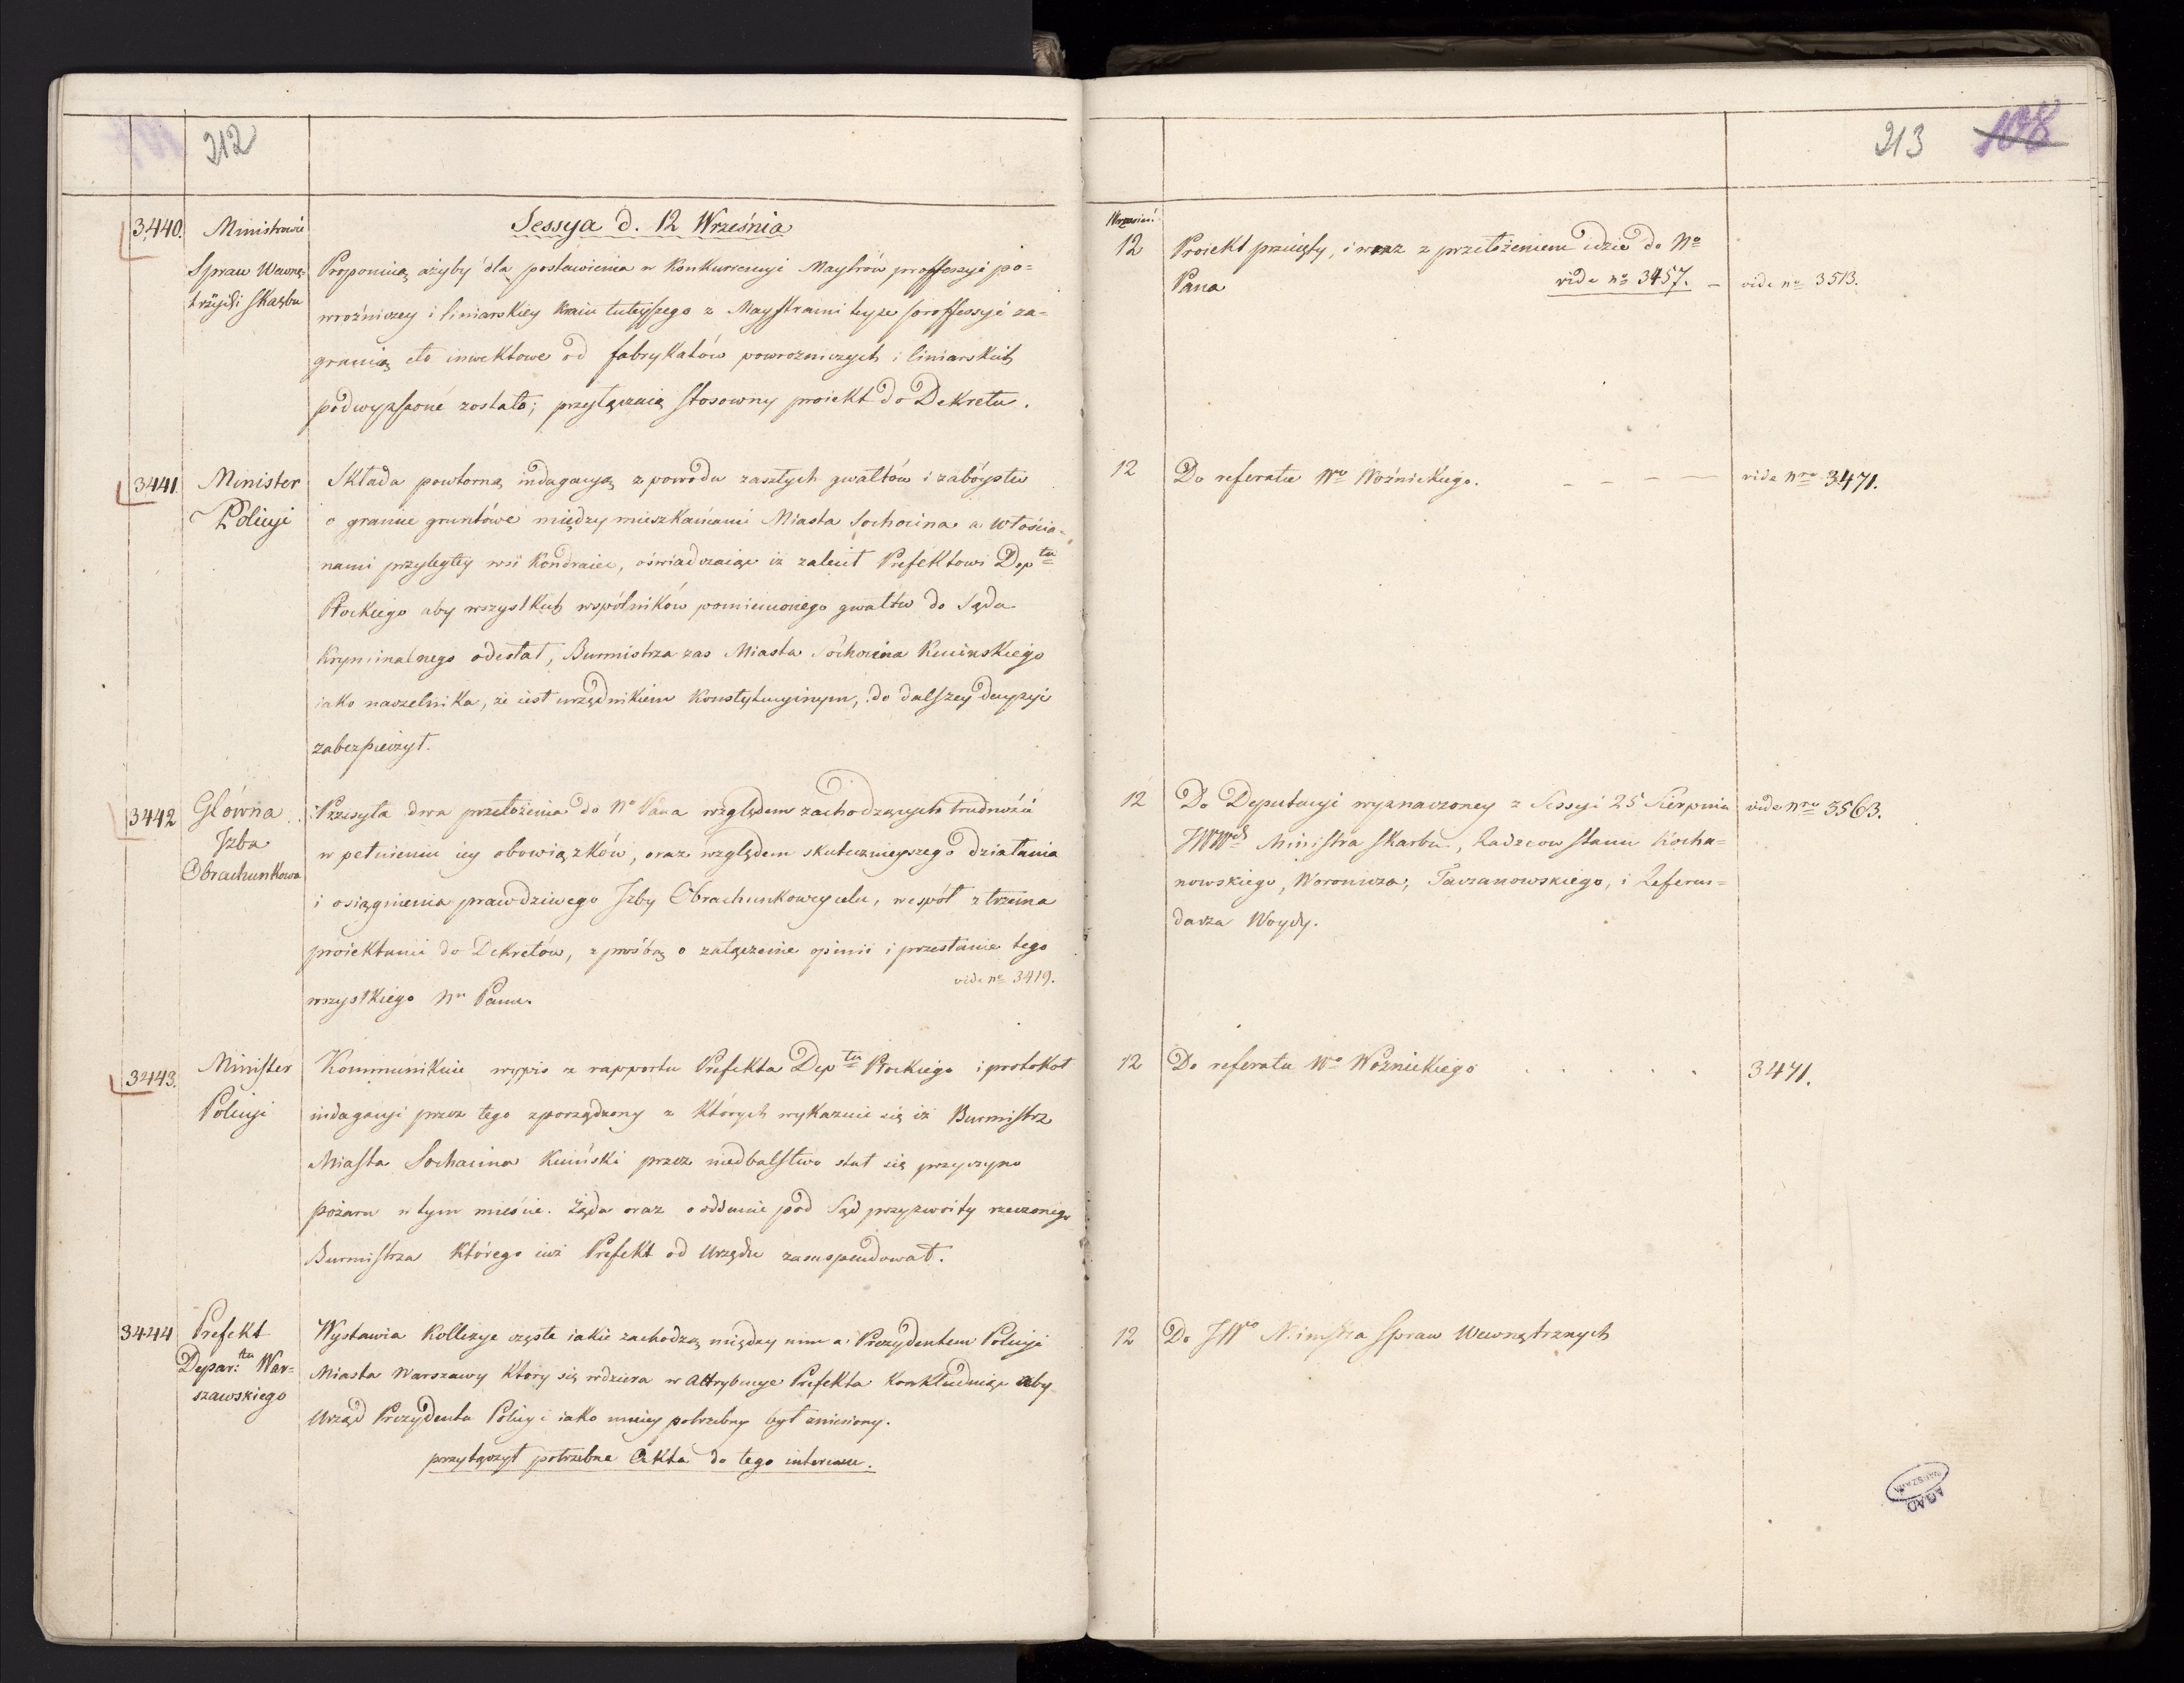 212
Sessya d. 12 Września
3440. Ministrowie
Spraw Wewnę-
trznych i Skarbu
Proponuią ażyby dla postawienia w Konkurrencyi Maystrów proffessyi po-
wroźniczey i liniarskiey Kraiu tuteyszego z Maystrami teyże proffessyi za-
granicą cło inwektowe od fabrykatów powroźniczych i liniarskich
podwyższoné zostało; przyłączaią stosowny proiekt do Dekretu.
3441 Minister
Policyi
Składa powtorną indagacyą z powodu zaszłych gwałtów i zabóystw
o granice gruntówe między mieszkańcami Miasta Sochocina a Włościa-
nami przyległey wsi Kondraiec, oświadczaiąc iż zalecił Prefektowi Dep tu
Płockiego aby wszystkich wspólników pomienionego gwałtu do Sądu
Kryminalnego odesłał, Burmistrza zas Miasta Sochocina Kucinskiego
iako naczelnika, że iest urzędnikiem Konstytucyinym, do dalszey decyzyi
zabezpieczył.
3442 Główna
Izba
Obrachunkowa
Przesyła dwa przełożenia do No Pana względem zachodzących trudności
w pełnieniu iey obowiązków, oraz względem skutecznieyszego działania
i osiągnienia prawdziwego Izby Obrachunkowey celu, wespół z trzema
proiektami do Dekretów, z prośbą o załączenie opinii i przesłanie tego
vide no 3419.
wszystkiego Nu Panu.
3443. Minister
Policyi
Kommunikuie wypis z rapportu Prefekta Dep tu Płockiego i protokoł
indagacyi przez tego zporządzony z których wykazuie się iż Burmistrz
Miasta Sochacina Kuciński przez niedbalstwo stał się przyczyno
pożaru w tym mieście. Żąda oraz o oddanie pod Sąd przyzwoity rzeczonego
Burmistrza którego iuż Prefekt od Urzędu zasuspendował.
3444 Prefekt
Depar: tu War-
szawskiego
Wystawia Kollizye częste iakie zachodzą między nim a Prezydentem Policyi
Miasta Warszawy który się wdziera w Attrybucye Prefekta konkluduiąc aby
Urząd Prezydenta Policyi iako mniey potrzebny był zniesiony.
przyłączył potrzebne Akta do tego interessu.
213 108
Wrzesień
12 Proiekt przyięty, i wraz z przełożeniem idzie do No
Pana vide no 3457. – vide no 3513.
12 Do referatu Wo Woźnickiego. – – – – vide Nro 3471.
12 Do Deputacyi wyznaczoney z Sessyi 25 Sierpnia vide nro 3563.
JWWch Ministra Skarbu, Radzców Stanu Kocha-
nowskiego, Woronicza, Taczanowskiego, i Referen-
darza Woydy.
12 Do referatu Wo Woźnickiego . . . . . 3471.
12 Do JWo Ministra Spraw Wewnętrznych
AGAD
WARSZAWA